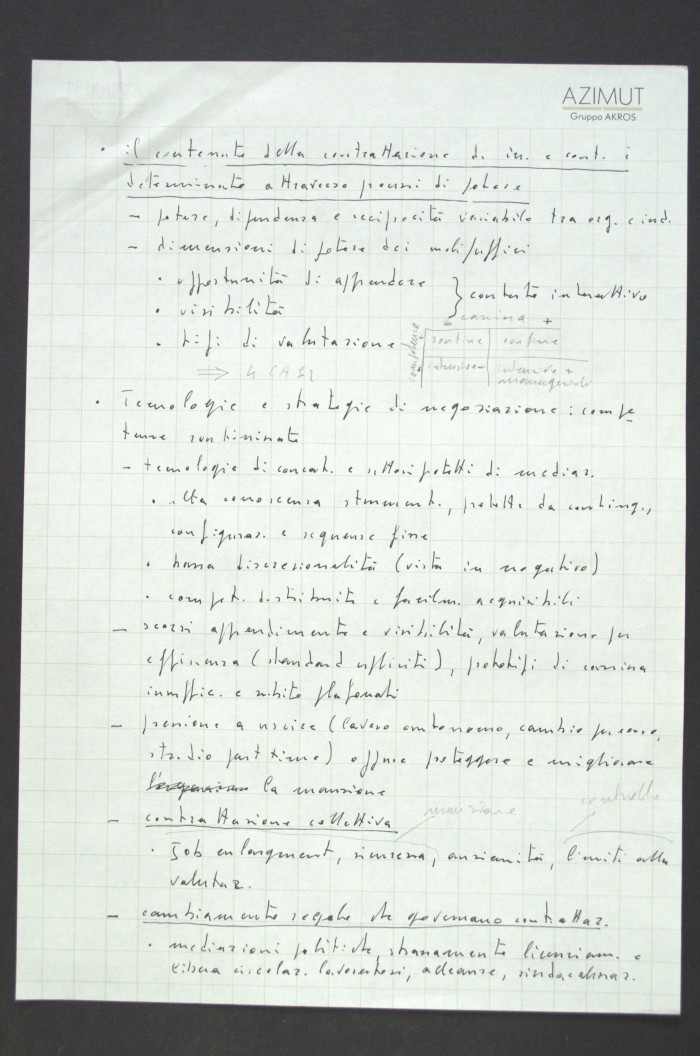 AZIMUT
Gruppo AKROS
• il contenuto della contrattazione di in. e cont. è
determinato attraverso processi di potere
– potere, dipendenza e reciprocità variabile tra org. e ind.
– dimensioni di potere dei
• opportunità di apprendere
• visibilità
} contesto interattivo
• tipi di valutazione
– carriera +
competenze
routine confine
intensive intensive +
manageriale
⇒ 4 CASI
• Tecnologie e strategie di negoziazione: compe-
tenze
– tecnologie di concat. e settori protetti di mediaz.
• alta conoscenza strument., protette da conting.,
configuraz. e sequenze fisse
• bassa discrezionalità (vista in negativo)
• compet. distribuite e facilm. acquisibili
– scarsi apprendimento e visibilità, valutazione per
efficienza (standard espliciti), prototipi di carriera
e subito plafonati
– pressione a uscire (lavoro autonomo, cambio processo,
studio part time) oppure proteggere e migliorare
la mansione
– contrattazione collettiva
mansione
controllo
• Job enlargment, sicurezza, anzianità, limiti alla
valutaz.
– cambiamento regole che governano contrattaz.
• mediazioni politiche, licenziam. e
libera circolaz. lavoratori, alleanze, sindacalizzaz.